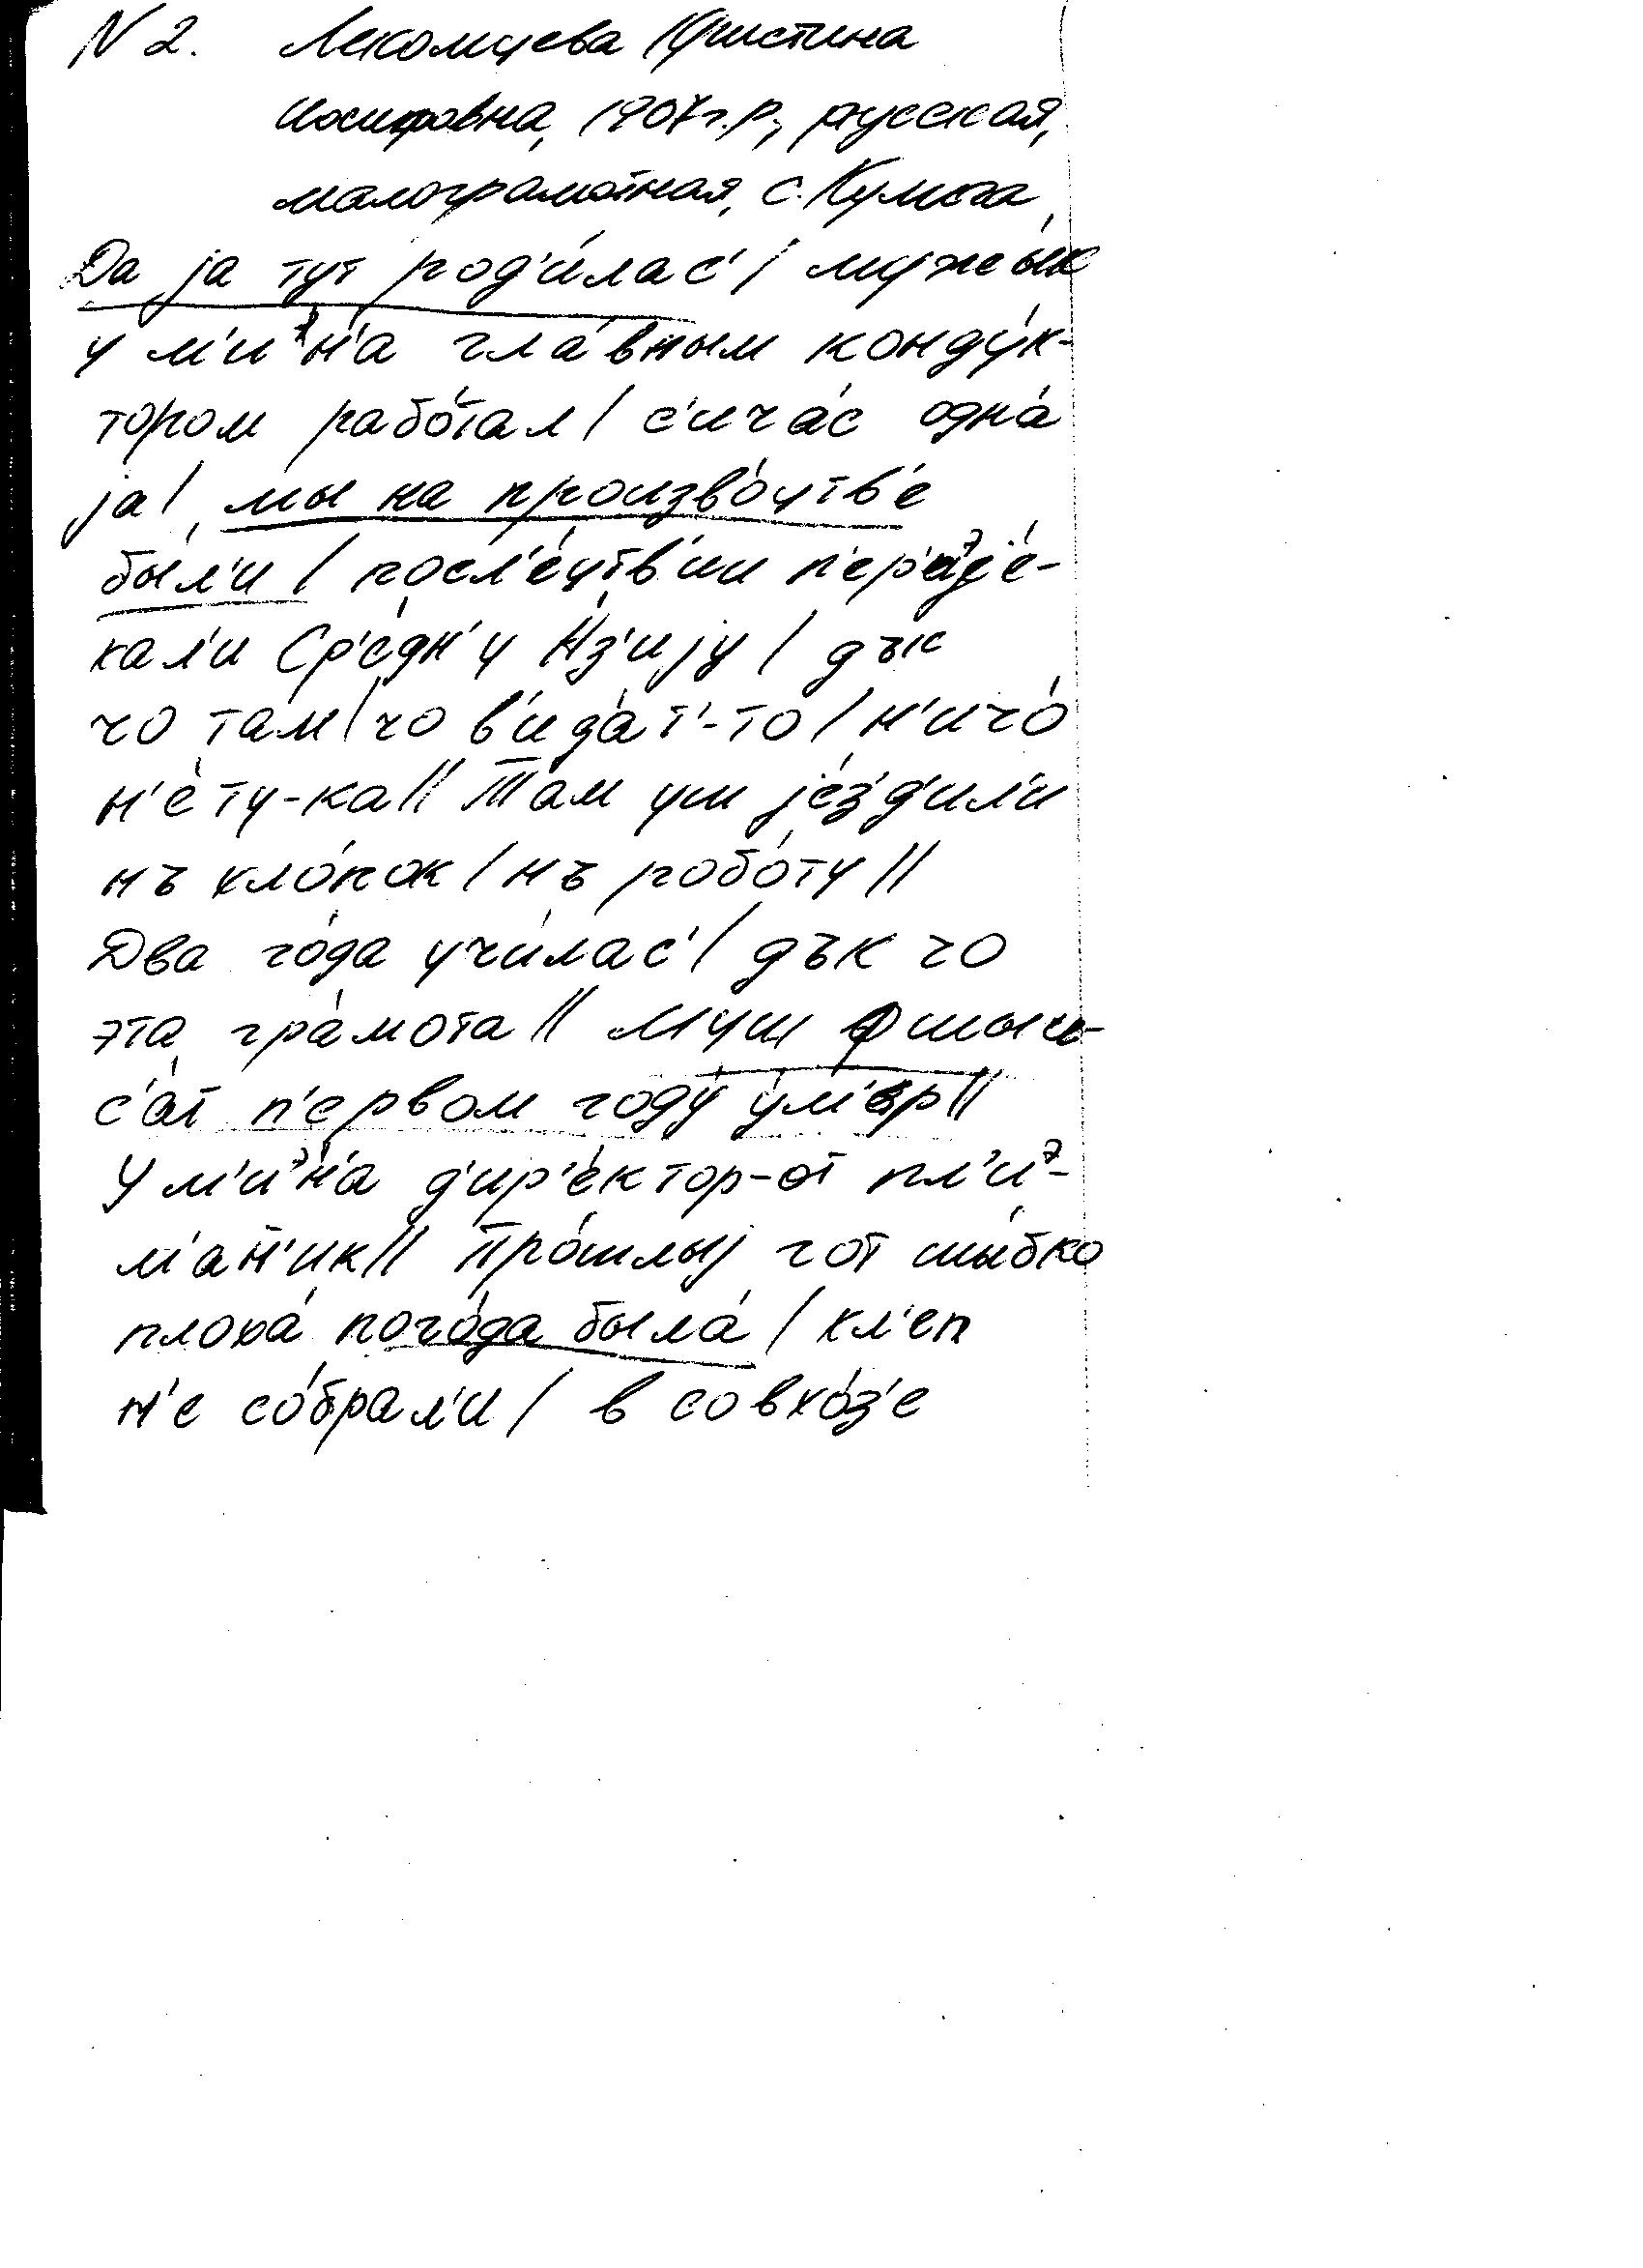 N 2. Лекомцева Кристина
Иосифовна, 1907 г.р., русская,
малограмотная, с. Кулига
Да jа тут род'и́лас' / мужы́к
у м'иᵊн'а́ гла́вным конду́к-
тором рабо́тал / с'ича́с одна́
jа / мы на произво́цтв'е
бы́л'и / посл'е́цтв'ии п'ер'иᵊjе́-
кал'и Ср'е́дн'у А́з'иjу / дък
чо там / чо в'ида́т'-то / н'ичо́
н'е́ту-ка // Там уш jе́з'д'ил'и
нъ хло́пок / нъ робо́ту //
Два го́да учи́лас' / дък чо
эта гра́мота // Муш ф шыс'-
с'ат п'е́рвом году́ у́м'ер //
У м'иᵊн'а́ д'ир'е́ктор-от пл'иᵊ-
м'а́н'ик // Про́шлыj гот шы́бко
плоха́ пого́да была́ / хл'еп
н'е со́брал'и / в совхо́з'е